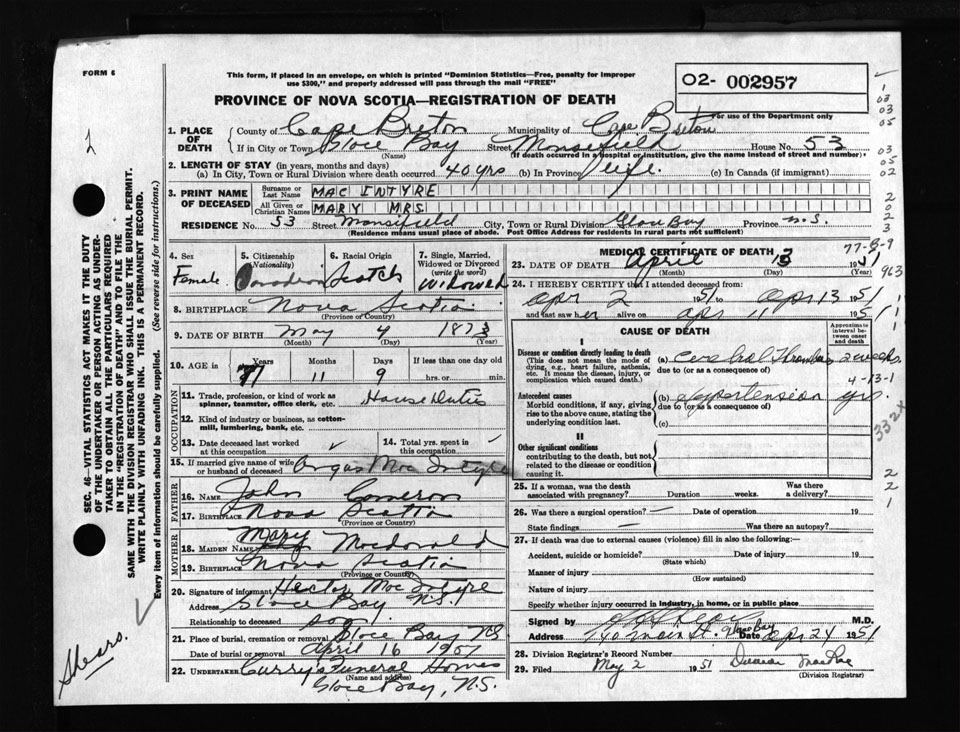 FORM 6
This form, if placed in an envelope, on which is printed "Dominion Statistics—Free, penalty for improper
use $300," and properly addressed will pass through the mail "FREE"
02- 002957
For use of the Department only
PROVINCE OF NOVA SCOTIA—REGISTRATION OF DEATH
1. PLACE OF DEATH
County of Cape Breton Municipality of Cape Breton
If in City or Town Glace Bay Street House No. 53
(Name) (If death occurred in a hospital or institution, give the name instead of street and number)
2. LENGTH OF STAY (in years, months and days)
(a) In City, Town or Rural Division where death occurred 40 yrs (b) In Province life (c) In Canada (if immigrant)
3. PRINT NAME OF DECEASED
Surname or Last Name MAC INTYRE
All Given or Christian Names MARY MRS
RESIDENCE No. 53 Street City, Town or Rural Division Glace Bay Province N.S.
(Residence means usual place of abode. Post Office Address for residents in rural parts not sufficient)
4. Sex Female
5. Citizenship (Nationality) Canadian
6. Racial Origin Scotch
7. Single, Married, Widowed or Divorced (write the word) Widowed
8. BIRTHPLACE Nova Scotia
(Province or Country)
9. DATE OF BIRTH May 4 1873
(Month) (Day) (Year)
10. AGE in Years 77 Months 11 Days 9 If less than one day old hrs. or min.
OCCUPATION
11. Trade, profession, or kind of work as spinner, teamster, office clerk, etc. House Duties
12. Kind of industry or business, as cotton-mill, lumbering, bank, etc.
13. Date deceased last worked at this occupation
14. Total yrs. spent in this occupation
15. If married give name of wife or husband of deceased Angus Mac Intyre
FATHER
16. NAME John Cameron
17. BIRTHPLACE Nova Scotia
(Province or Country)
MOTHER
18. MAIDEN NAME Mary Macdonald
19. BIRTHPLACE Nova Scotia
(Province or Country)
20. Signature of informant Hector Mac Intyre
Address Glace Bay N.S.
Relationship to deceased son
21. Place of burial, cremation or removal Glace Bay NS
Date of burial or removal April 16 1951
22. UNDERTAKER Curry's Funeral Homes
(Name and address)
Glace Bay, N.S.
MEDICAL CERTIFICATE OF DEATH
23. DATE OF DEATH April 13 1951
(Month) (Day) (Year)
24. I HEREBY CERTIFY that I attended deceased from:
Apr 2 1951 to Apr 13 1951
and last saw her alive on Apr 11 1951
CAUSE OF DEATH
Approximate interval between onset and death
I
Disease or condition directly leading to death (a) Cerebral Thrombosis 2 weeks.
(This does not mean the mode of dying, e.g., heart failure, asthenia, etc. It means the disease, injury, or complication which caused death.)
due to (or as a consequence of)
Antecedent causes (b) Hypertension yrs.
Morbid conditions, if any, giving rise to the above cause, stating the underlying condition last.
due to (or as a consequence of)
(c)
II
Other significant conditions
contributing to the death, but not related to the disease or condition causing it.
25. If a woman, was the death associated with pregnancy? Duration weeks. Was there a delivery?
26. Was there a surgical operation? — Date of operation 19
State findings — Was there an autopsy?
27. If death was due to external causes (violence) fill in also the following:—
Accident, suicide or homicide? Date of injury 19
(State which)
Manner of injury
(How sustained)
Nature of injury
Specify whether injury occurred in industry, in home, or in public place
Signed by M.D.
Address 140 Main St. Glace Bay Date Apr 24 1951
28. Division Registrar's Record Number
29. Filed May 2 1951
(Division Registrar)
SEC. 46—VITAL STATISTICS ACT MAKES IT THE DUTY
OF THE UNDERTAKER OR PERSON ACTING AS UNDER-
TAKER TO OBTAIN ALL THE PARTICULARS REQUIRED
IN THE "REGISTRATION OF DEATH" AND TO FILE THE
SAME WITH THE DIVISION REGISTRAR WHO SHALL ISSUE THE BURIAL PERMIT.
WRITE PLAINLY WITH UNFADING INK. THIS IS A PERMANENT RECORD.
Every item of information should be carefully supplied. (See reverse side for instructions.)
1
03
03
05
03
05
02
2
0
2
3
77-8-9
963
1
1
4-13-1
332x
2
2
1